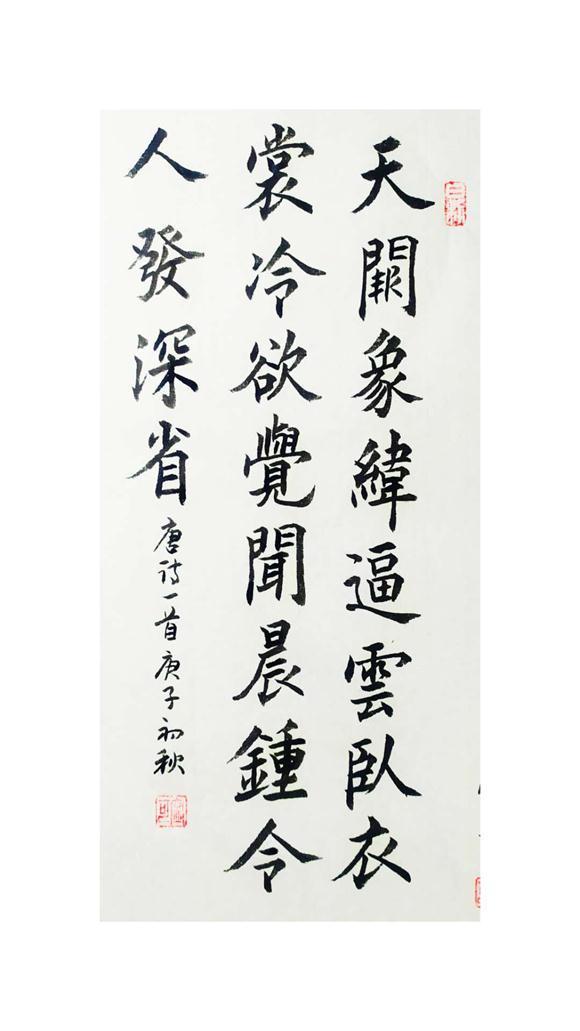 天闕象緯逼雲臥衣
裳冷欲覺聞晨鍾令
人發深省
唐诗一首庚子初秋